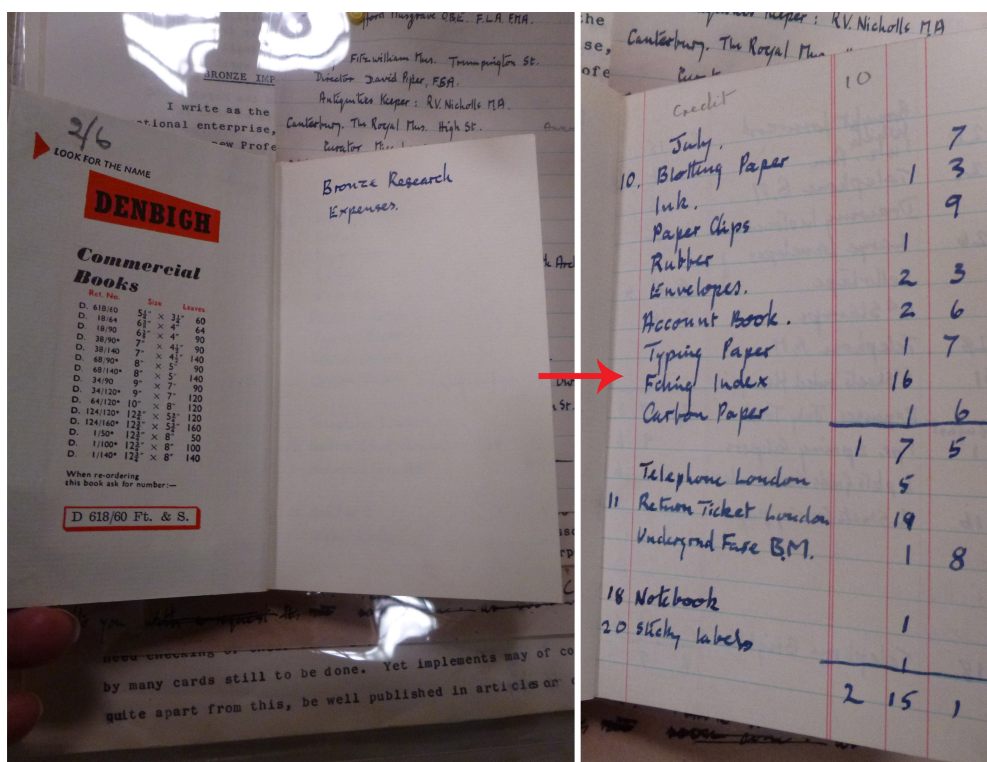 ford Musgrave OBE. F.L.A. FMA.
Fitzwilliam Mus. Trumpington St.
BRONZE IMP
Director David Piper, FSA.
I write as the
Antiquities Keeper: R.V. Nicholls M.A.
tional enterprise,
Canterbury. The Royal Mus. High St.
new Profe
Curator
2/6
LOOK FOR THE NAME
DENBIGH
Commercial
Books
Ref. No. Size Leaves
D. 618/60 5½" × 3¼" 60
D. 18/64 6½" × 4" 64
D. 18/90 6½" × 4" 90
D. 38/90* 7" × 4½" 90
D. 38/140 7" × 4½" 140
D. 68/90* 8" × 5" 90
D. 68/140* 8" × 5" 140
D. 34/90 9" × 7" 90
D. 34/120* 9" × 7" 120
D. 64/120* 10" × 8" 120
D. 124/120* 12¾" × 5¾" 120
D. 124/160* 12¾" × 5¾" 160
D. 1/50* 12¾" × 8" 50
D. 1/100* 12¾" × 8" 100
D. 1/140* 12¾" × 8" 140
When re-ordering
this book ask for number:—
D 618/60 Ft. & S.
Bronze Research
Expenses.
need checking or
by many cards still to be done. Yet implements may of co
quite apart from this, be well published in articles or
Antiquities Keeper: R.V. Nicholls MA
Canterbury. The Royal Mus.
Credit 10
July. 7
10. Blotting Paper 1 3
Ink. 9
Paper Clips
Rubber 1
Envelopes. 2 3
Account Book. 2 6
Typing Paper 1 7
Filing Index 16
Carbon Paper 1 6
1 7 5
Telephone London 5
11 Return Ticket London 19
Undergrnd Fare B.M. 1 8
18 Notebook 1
20 Sticky labels 1
2 15 1